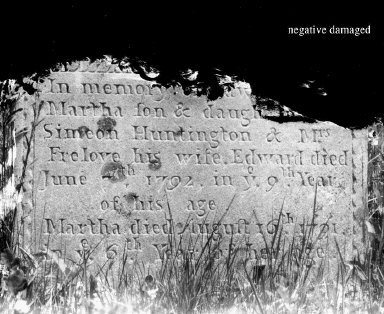 negative damaged
In memory
Martha son & daugh
Simeon Huntington & Mrs
Frelove his wife. Edward died
June th 1792, in ye 9th Year
of his age
Martha died August 16th 1791
in ye 6th Year of her age